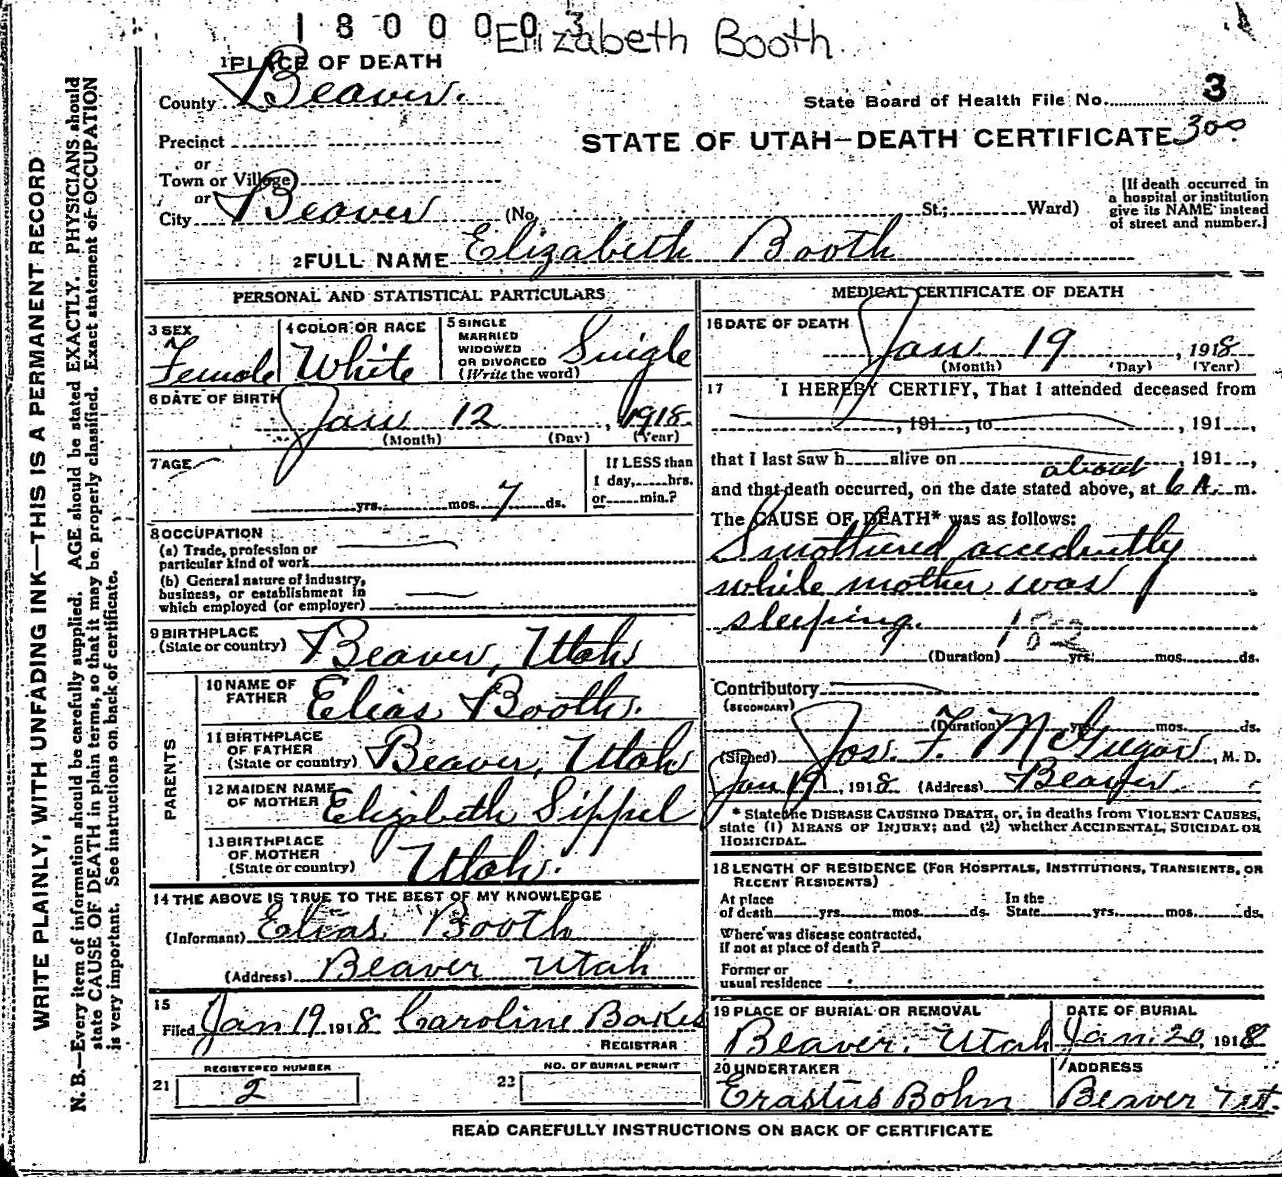 1800003
Elizabeth Booth
1 PLACE OF DEATH
County Beaver.
State Board of Health File No. 3
Precinct
STATE OF UTAH—DEATH CERTIFICATE 300
or
Town or Village
or
City Beaver (No. St.; Ward)
[If death occurred in
a hospital or institution
give its NAME instead
of street and number.]
2 FULL NAME Elizabeth Booth
PERSONAL AND STATISTICAL PARTICULARS
3 SEX
Female
4 COLOR OR RACE
White
5 SINGLE
MARRIED
WIDOWED
OR DIVORCED
(Write the word)
Single
6 DATE OF BIRTH
Jan 12, 1918
(Month) (Day) (Year)
7 AGE
yrs. mos. 7 ds.
If LESS than
1 day, hrs.
or min.?
8 OCCUPATION
(a) Trade, profession or
particular kind of work
(b) General nature of industry,
business, or establishment in
which employed (or employer)
9 BIRTHPLACE
(State or country)
Beaver, Utah
PARENTS
10 NAME OF
FATHER
Elias Booth.
11 BIRTHPLACE
OF FATHER
(State or country)
Beaver, Utah
12 MAIDEN NAME
OF MOTHER
Elizabeth Sippel
13 BIRTHPLACE
OF MOTHER
(State or country)
Utah.
14 THE ABOVE IS TRUE TO THE BEST OF MY KNOWLEDGE
(Informant) Elias Booth
(Address) Beaver Utah
15
Filed Jan 19 1918 Caroline Bakes
REGISTRAR
REGISTERED NUMBER
21 2
NO. OF BURIAL PERMIT
22
MEDICAL CERTIFICATE OF DEATH
16 DATE OF DEATH
Jan 19, 1918
(Month) (Day) (Year)
17 I HEREBY CERTIFY, That I attended deceased from
, 191 , to , 191 ,
that I last saw h alive on , 191 ,
about
and that death occurred, on the date stated above, at 6 A. m.
The CAUSE OF DEATH* was as follows:
Smothered accidently
while mother was
sleeping. 182
(Duration) yrs. mos. ds.
Contributory
(SECONDARY)
(Duration) yrs. mos. ds.
(Signed) Jos. F. McGregor, M. D.
Jan 19, 1918 (Address) Beaver
* State the DISEASE CAUSING DEATH, or, in deaths from VIOLENT CAUSES,
state (1) MEANS OF INJURY; and (2) whether ACCIDENTAL, SUICIDAL OR
HOMICIDAL.
18 LENGTH OF RESIDENCE (FOR HOSPITALS, INSTITUTIONS, TRANSIENTS, OR
RECENT RESIDENTS)
At place In the
of death yrs. mos. ds. State yrs. mos. ds.
Where was disease contracted,
if not at place of death?
Former or
usual residence
19 PLACE OF BURIAL OR REMOVAL
Beaver, Utah
DATE OF BURIAL
Jan. 20, 1918
20 UNDERTAKER
Erastus Bohn
ADDRESS
Beaver Ut.
READ CAREFULLY INSTRUCTIONS ON BACK OF CERTIFICATE
WRITE PLAINLY, WITH UNFADING INK—THIS IS A PERMANENT RECORD
N. B.—Every item of information should be carefully supplied. AGE should be stated EXACTLY. PHYSICIANS should
state CAUSE OF DEATH in plain terms, so that it may be properly classified. Exact statement of OCCUPATION
is very important. See instructions on back of certificate.